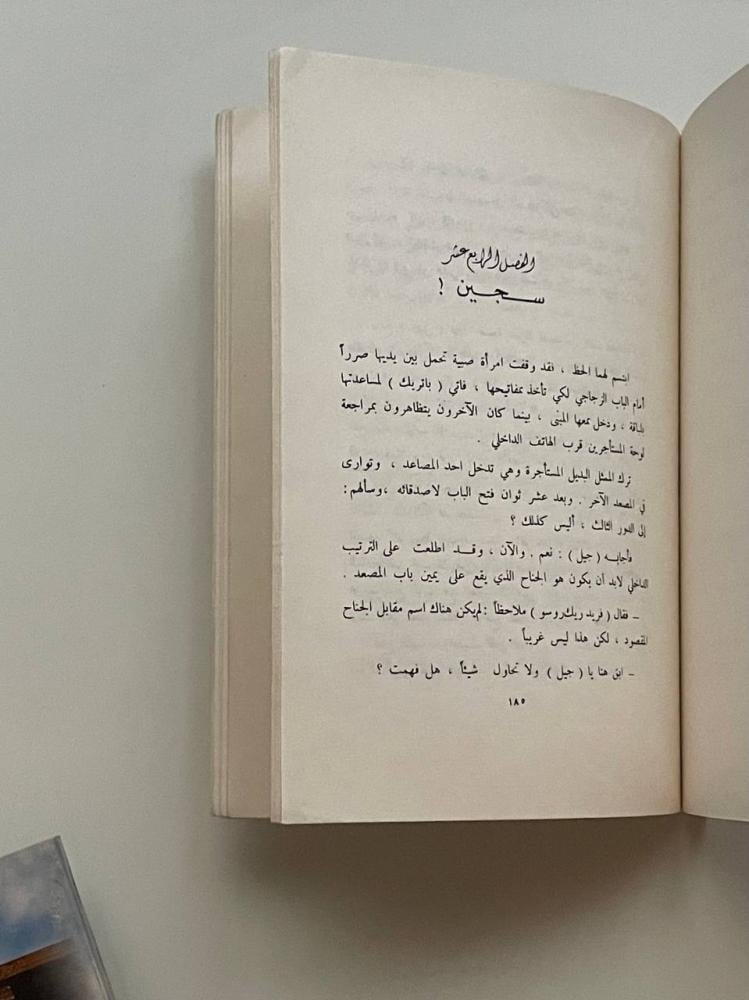 الفصل الرابع عشر
سجين !
ابتسم لهما الحظ ، فقد وقفت امرأة صبية تحمل بين يديها صرراً
أمام الباب الزجاجي لكي تأخذ بمفاتيحها ، فاتي ( باتريك ) لمساعدتها
بلباقة ، ودخل معها المبنى ، بينما كان الآخرون يتظاهرون بمراجعة
لوحة المستأجرين قرب الهاتف الداخلي .
ترك الممثل البديل المستأجرة وهي تدخل احد المصاعد ، وتوارى
في المصعد الآخر . وبعد عشر ثوان فتح الباب لاصدقائه ،وسألهم :
إلى الدور الثالث ، أليس كذلك ؟
فأجابه ( جيل ) : نعم . والآن ، وقد اطلعت على الترتيب
الداخلي لابد أن يكون هو الجناح الذي يقع على يمين باب المصعد .
– فقال ( فريدريك روسو ) ملاحظاً : لم يكن هناك اسم مقابل الجناح
المقصود ، لكن هذا ليس غريباً .
– ابق هنا يا ( جيل ) ولا تحاول شيئاً ، هل فهمت ؟
١٨٥